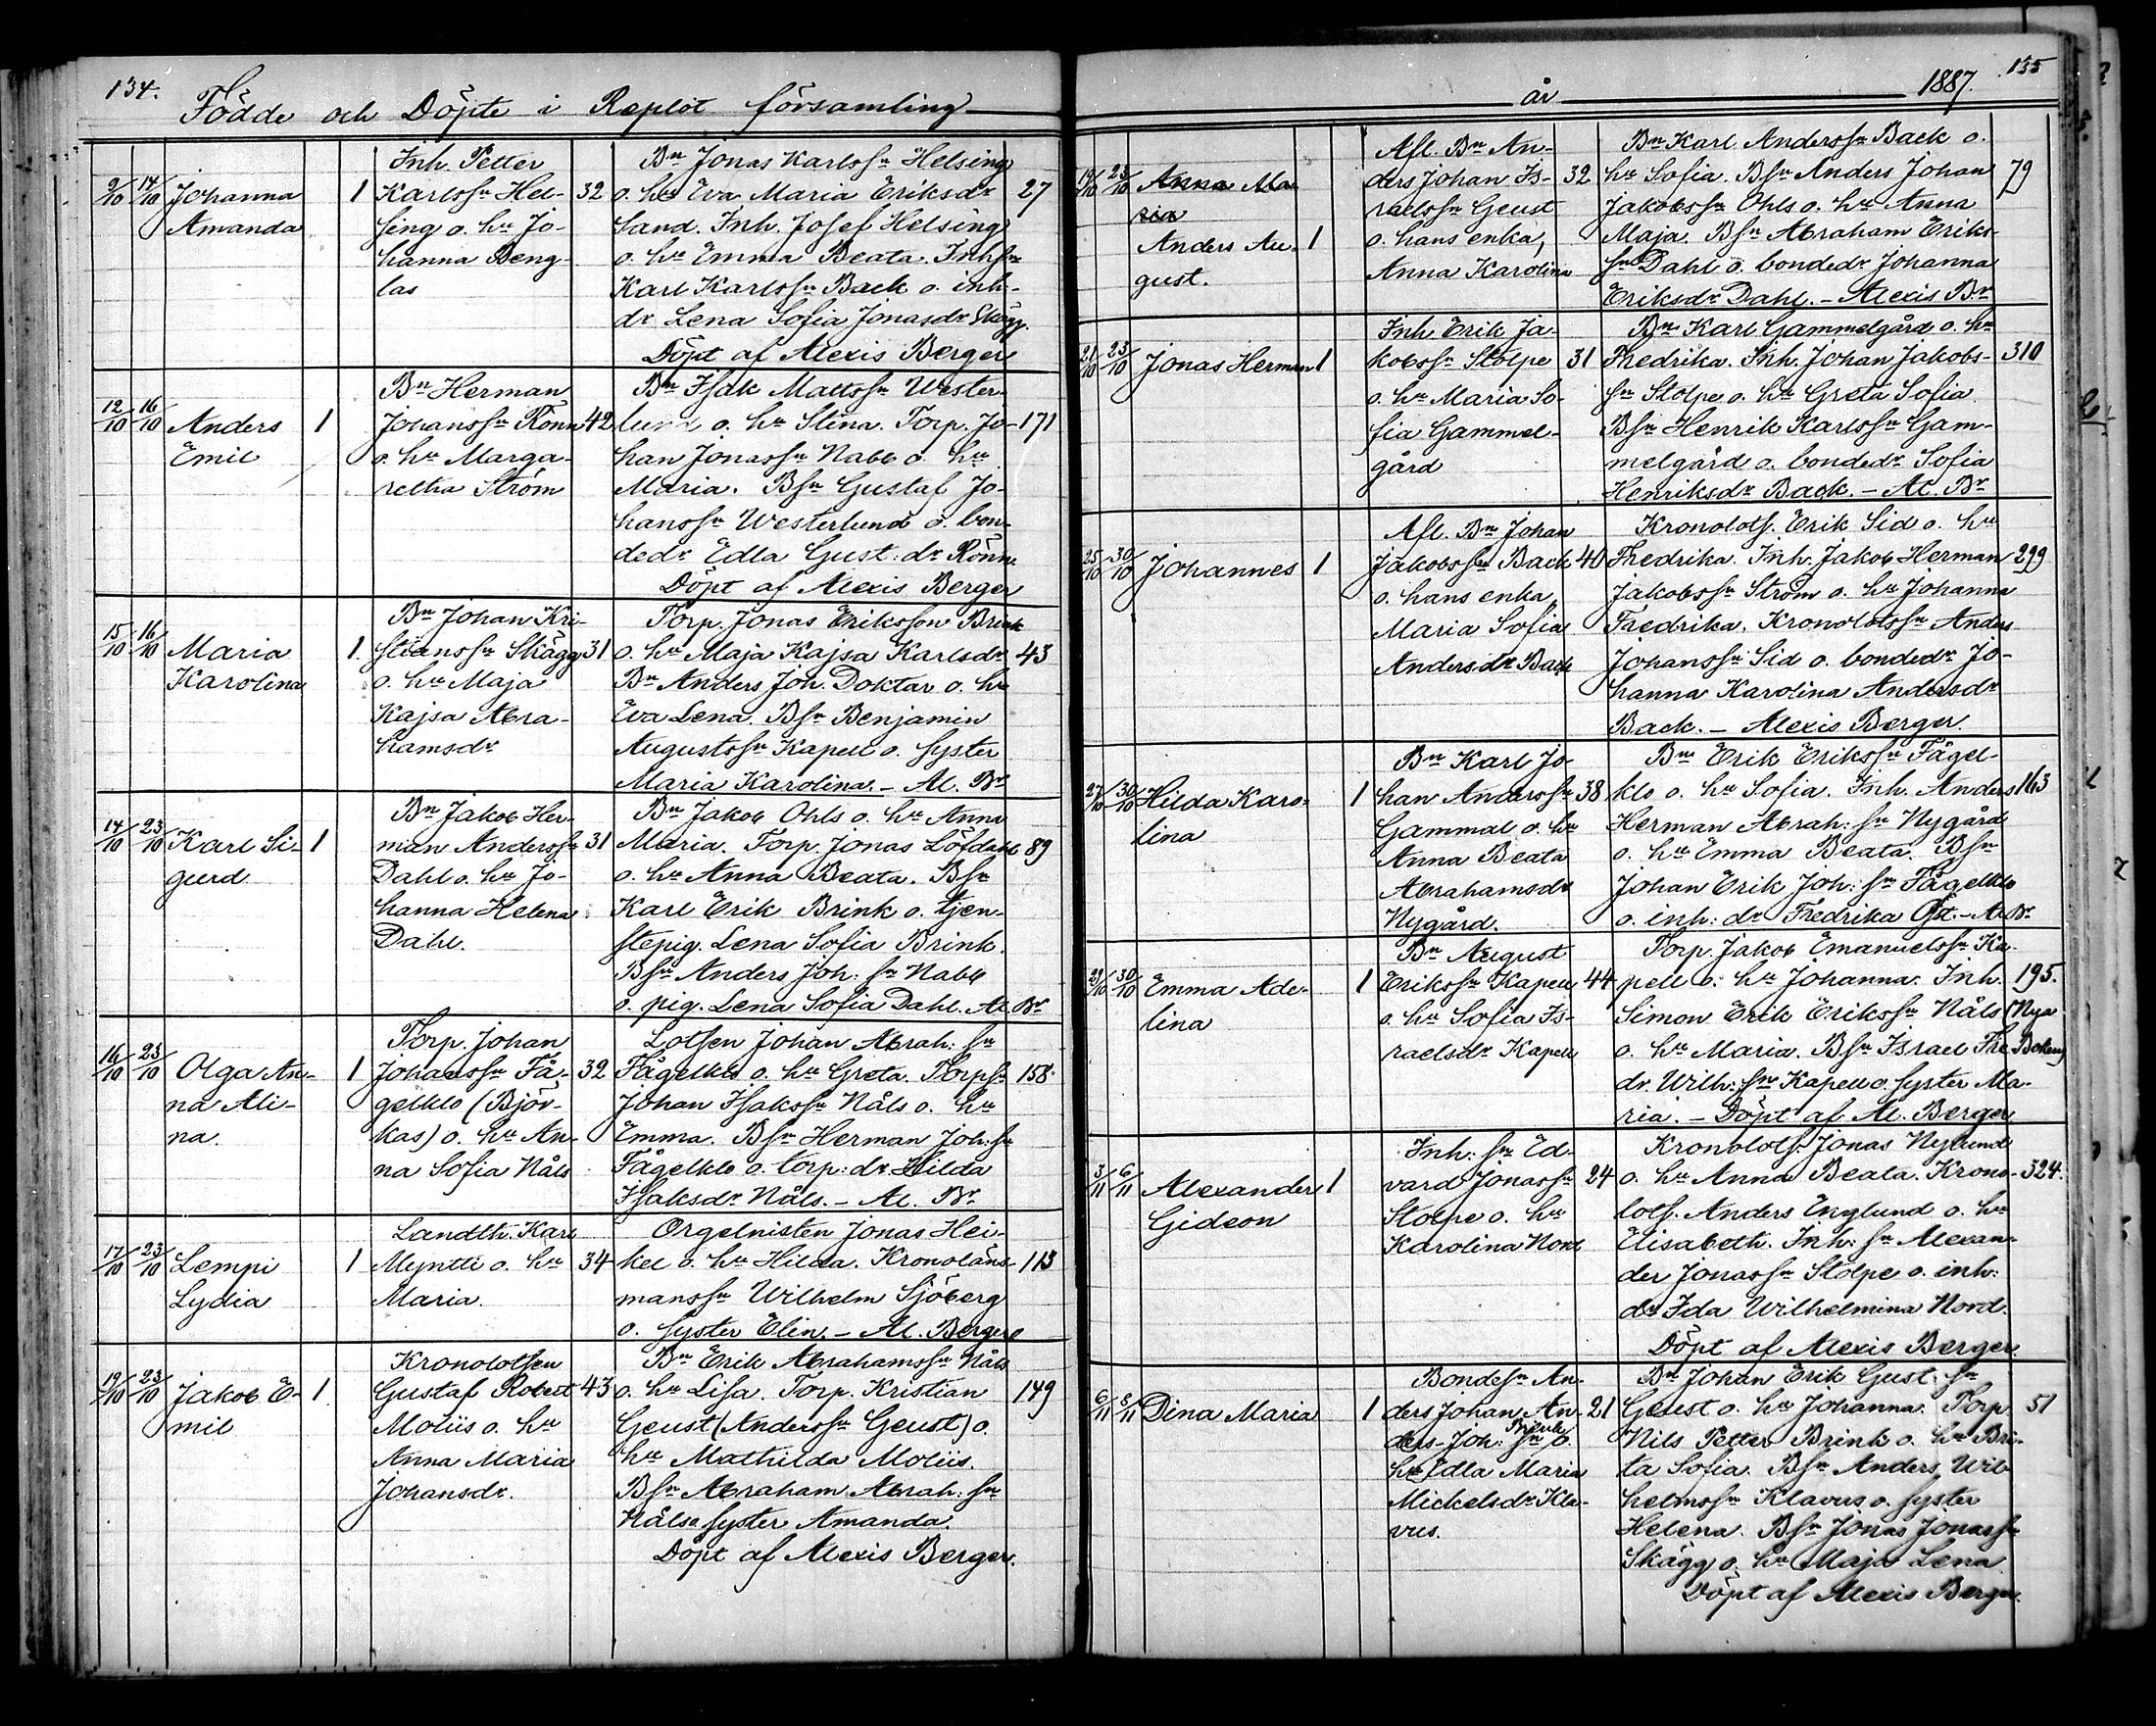 134.
Födde och Döpte i Replot församling
9/10 14/10 Johanna Amanda 1
Inh. Petter
Karlssn Hel-
sing o. hu Jo-
hanna Beng-
las
32
Bn Jonas Karlssn Helsing
o. hu Eva Maria Eriksdr
Sand. Inh. Josef Helsing
o. hu Emma Beata. Inhsn
Karl Karlssn Back o. inh-
dr Lena Sofia Jonasdr Skägg.
Döpt af Alexis Berger
27
12/10 16/10 Anders Emil 1
Bn Herman
Johanssn Rönn
o. hu Marga-
retha Ström
42
Bn Isak Mattssn Wester-
lund o. hu Stina. Torp. Jo-
han Jonassn Nabb o. hu
Maria. Bsn Gustaf Jo-
hanssn Westerlund o. bon-
dedr Edla Gust: dr Rönn.
Döpt af Alexis Berger
171
15/10 16/10 Maria Karolina 1.
Bn Johan Kri-
stianssn Skägg
o. hu Maja
Kajsa Abra-
hamsdr
31
Torp. Jonas Eriksson Brink
o. hu Maja Kajsa Karlsdr
Bn Anders Joh. Doktar o. hu
Eva Lena. Bsn Benjamin
Augustssn Kapell o. syster
Maria Karolina. - Al. Br
43
14/10 23/10 Karl Si-
gurd 1
Bn Jakob Her-
man Anderssn
Dahl o. hu Jo-
hanna Helena
Dahl.
31
Bn Jakob Ohls o. hu Anna
Maria. Torp. Jonas Löfdahl
o. hu Anna Beata. Bsn
Karl Erik Brink o. tjen-
stepig. Lena Sofia Brink.
Bsn Anders Joh: sn Nabb
o. pig. Lena Sofia Dahl. Al. Br
89
16/10 23/10 Olga An-
na Ali-
na. 1
Torp. Johan
Johanssn Få-
gelklo (Björ-
kas) o. hu An-
na Sofia Nåls
32
Lotsen Johan Abrah: sn
Fågelklo o. hu Greta. Torpsn
Johan Isakssn Nåls o. hu
Emma. Bsn Herman Joh: sn
Fågelklo o. torp: dr Hilda
Isaksdr Nåls. - Al. Br
158.
17/10 23/10 Lempi
Lydia 1
Landth. Karl
Myntti o. hu
Maria.
34
Orgelnisten Jonas Hei-
kel o. hu Hilda. Kronoläns-
manssn Wilhelm Sjöberg
o. syster Elin. - Al. Berger
113
19/10 23/10 Jakob E-
mil 1.
Kronolotsen
Gustaf Robert
Moliis o. hu
Anna Maria
Johansdr.
43
Bn Erik Abrahamssn Nåls
o. hu Lisa. Torp. Kristian
Geust (Anderssn Geust) o.
hu Mathilda Moliis.
Bsn Abraham Abrah: sn
Nåls o syster Amanda.
Döpt af Alexis Berger.
149
år 1887. 135
19/10 23/10 Anna Ma-
ria
Anders Au-
gust. 1
Afl. Bn An-
ders Johan Is-
raelssn Geust
o. hans enka,
Anna Karolina
32
Bn Karl Anderssn Back o.
hu Sofia. Bsn Anders Johan
Jakobssn Ohls o. hu Anna
Maja. Bsn Abraham Eriks-
sn Dahl o. bondedr Johanna
Eriksdr Dahl. - Alexis Br
79
21/10 23/10 Jonas Herman 1
Inh Erik Ja-
kobssn Stolpe
o. hu Maria So-
fia Gammel-
gård
31
Bn Karl Gammelgård o. hu
Fredrika. Inh. Johan Jakobs-
sn Stolpe o. hu Greta Sofia
Bsn Henrik Karlssn Gam-
melgård o. bondedr Sofia
Henriksdr Back. - Al. Br
310
25/10 30/10 Johannes 1
Afl. Bn Johan
Jakobssn Back
o. hans enka
Maria Sofia
Andersdr Back
40
Kronolots. Erik Sid o. hu
Fredrika. Inh. Jakob Herman
Jakobssn Ström o. hu Johanna
Fredrika. Kronolotssn Anders
Johanssn Sid o. bondedr Jo-
hanna Karolina Andersdr
Back. - Alexis Berger.
299
27/10 30/10 Hilda Karo-
lina 1
Bn Karl Jo-
han Anderssn
Gammal o. hu
Anna Beata
Abrahamsdr
Nygård.
38
Bn Erik Erikssn Fågel-
klo o. hu Sofia. Inh. Anders
Herman Abrah: sn Nygård
o. hu Emma Beata. Bsn
Johan Erik Joh: sn Fågelklo
o. inh: dr Fredrika Öst. - Al Br
163
29/10 30/10 Emma Ade-
lina 1
Bn August
Erikssn Kapell
o. hu Sofia Is-
raelsdr Kapell
44
Torp. Jakob Emanuelssn Ka-
pell o. hu Johanna. Inh.
Simon Erik Erikssn Nåls
o. hu Maria. Bsn Israel Fre-
dr. Wilh: sn Kapell o. syster Ma-
ria. - Döpt af Al. Berger
195.
(Nya
Boken)
3/11 6/11 Alexander
Gideon 1
Inh: sn Ed-
vard Jonassn
Stolpe o. hu
Karolina Nord
24
Kronolots. Jonas Nylund
o. hu Anna Beata. Krono-
lots. Anders Englund o. hu
Elisabeth. Inh: sn Alexan-
der Jonassn Stolpe o. inh:
dr Ida Wilhelmina Nord.
Döpt af Alexis Berger
324.
6/11 8/11 Dina Maria 1
Bondesn An-
ders Johan An-
ders-Joh: sn Brink o.
hu Edla Maria
Mickelsdr Kla-
vus.
21
Bn Johan Erik Gust: sn
Geust o. hu Johanna. Torp.
Nils Petter Brink o. hu Bri-
ta Sofia. Bsn Anders Wil-
helmssn Klavus o. syster
Helena. Bsn Jonas Jonassn
Skägg o. hu Maja Lena
Döpt af Alexis Berger.
51